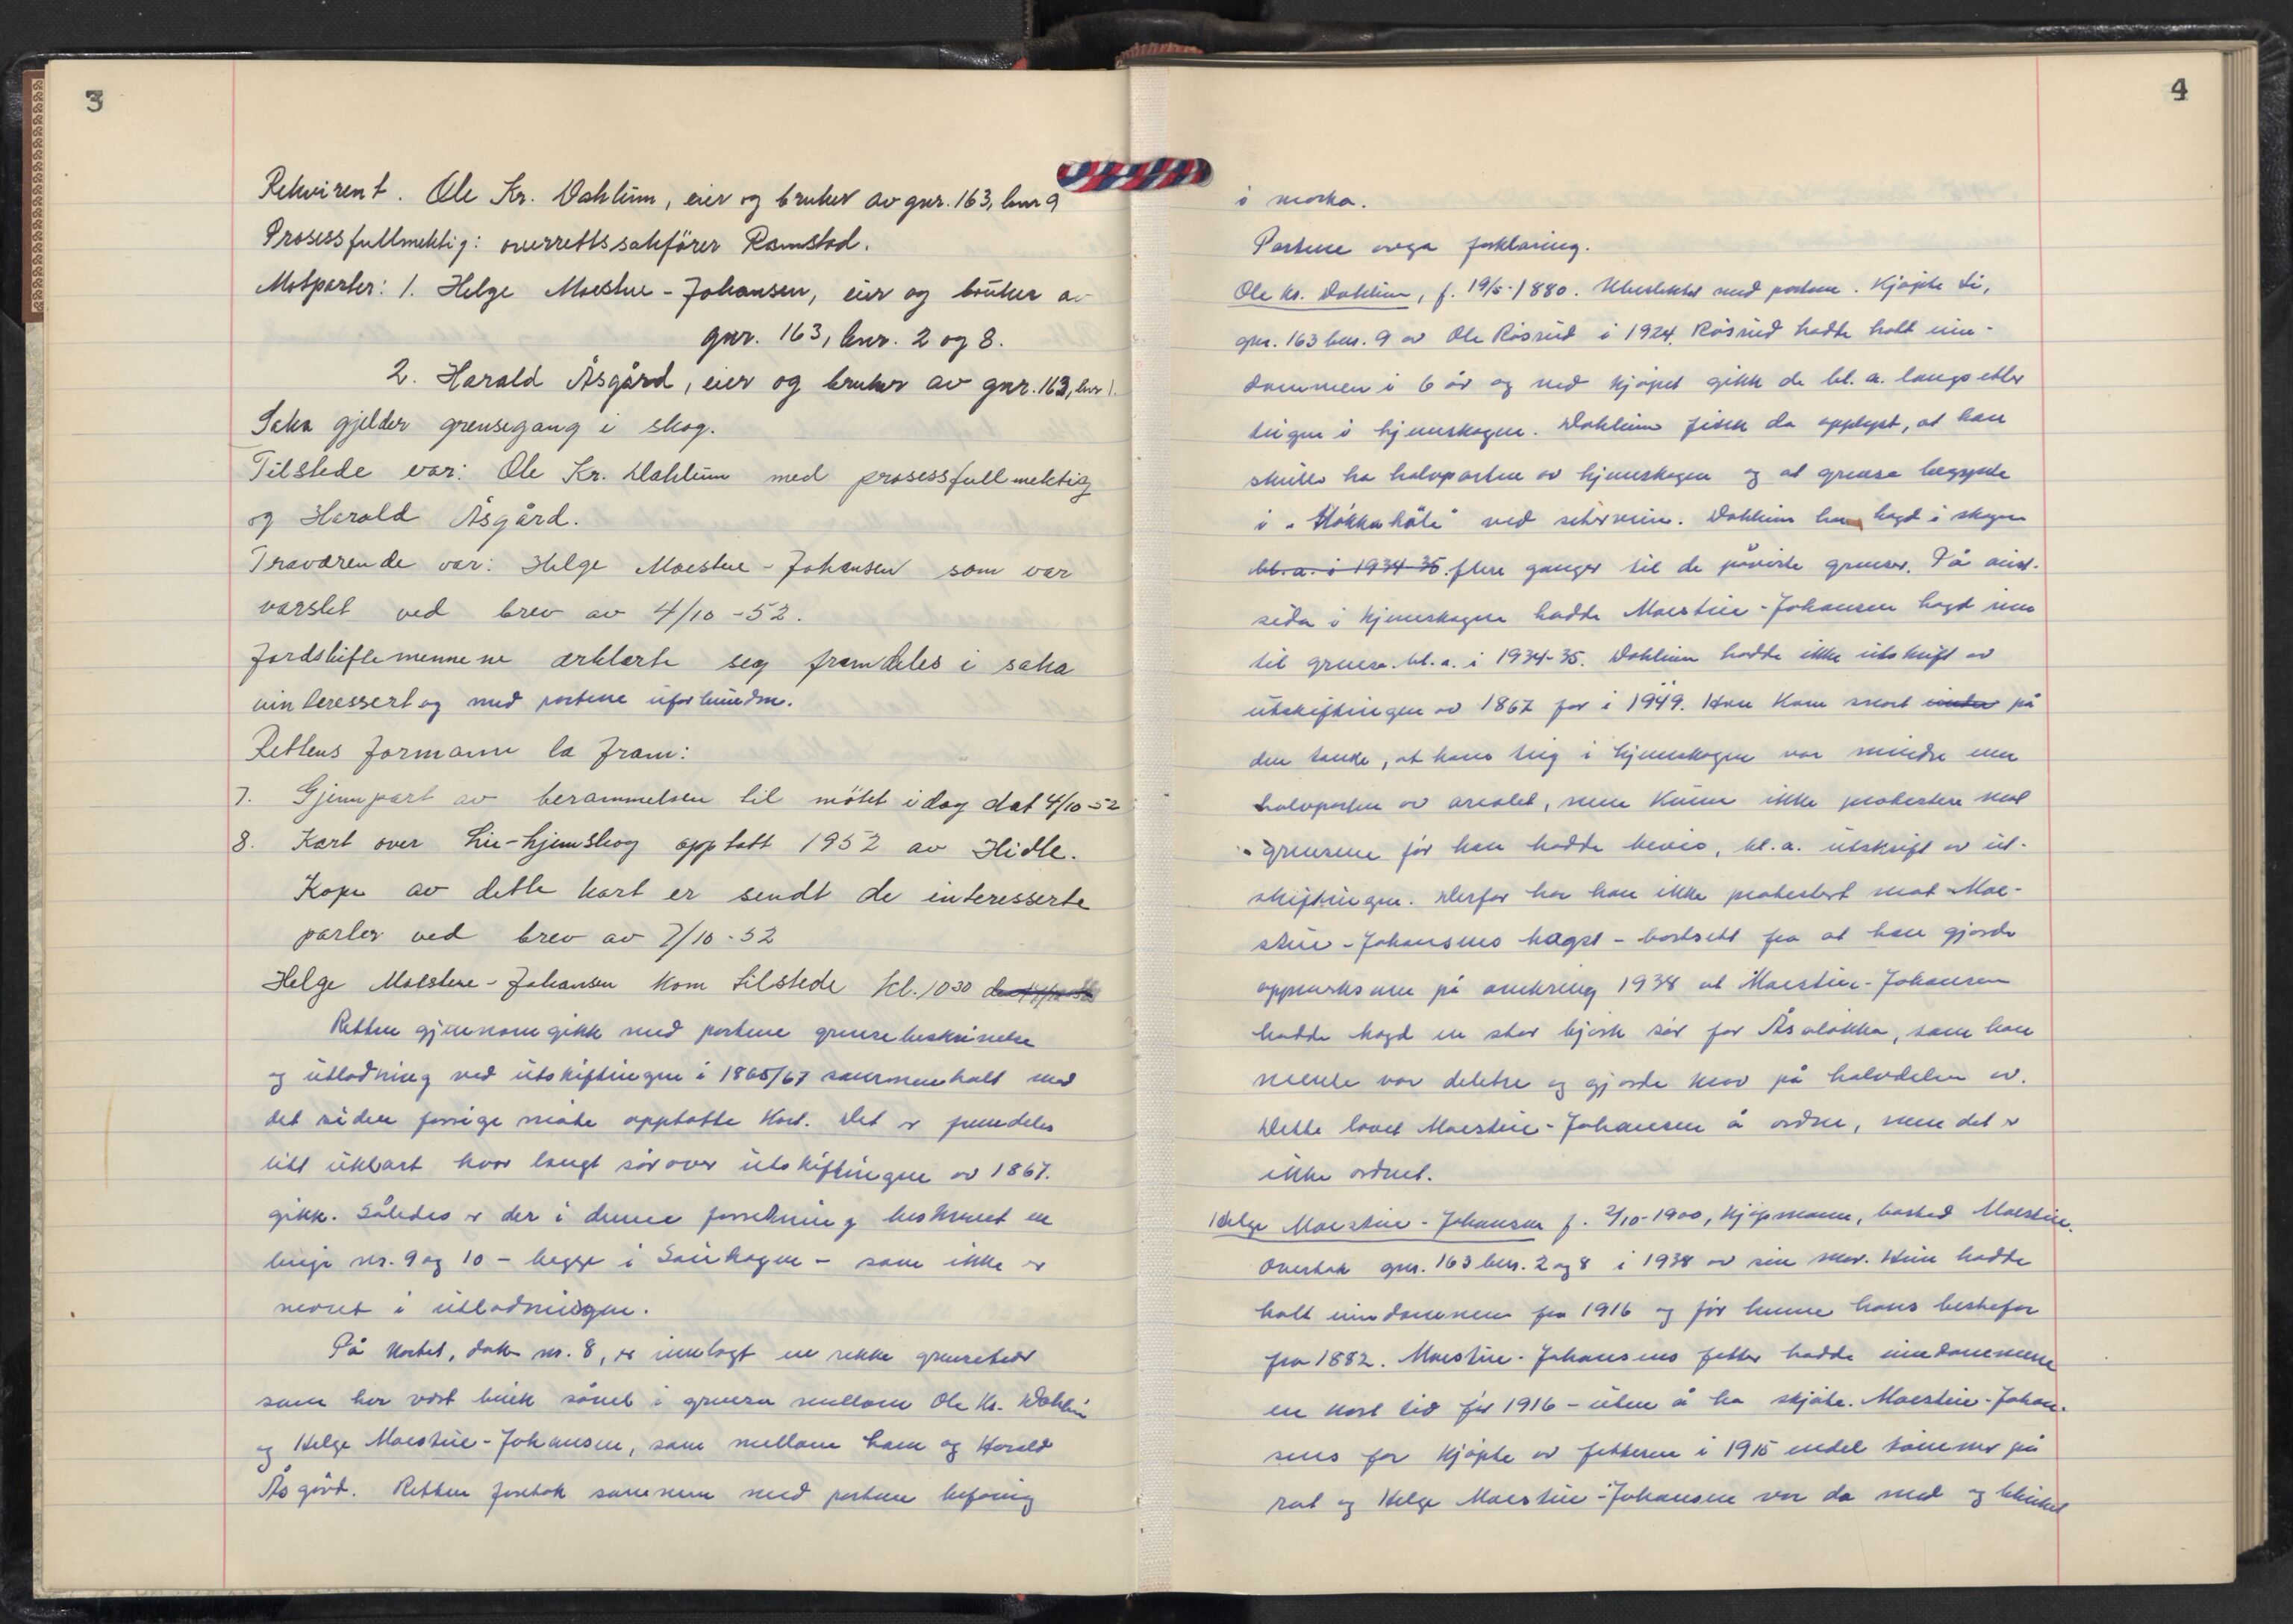 3
Rekvirent. Ole Kr. Dahlum, eier og bruker av gnr. 163, bnr 9
Prosessfullmektig: overrettssakfører Ramstad.
Motparter: 1. Helge Moestue-Johansen, eier og bruker av
gnr. 163, bnr. 2 og 8.
2. Harald Åsgård, eier og bruker av gnr. 163, bnr 1.
Saka gjelder grensegang i skog.
Tilstede var: Ole Kr. Dahlum med prosessfullmektig
og Harald Åsgård.
Fraværende var: Helge Moestue-Johansen som var
varslet ved brev av 4/10-52.
Jordskiftemennene erklærte seg framdeles i saka
uinteressert og med partene uforbundne.
Rettens formann la fram:
7. Gjennpart av berammelsen til møtet idag dat 4/10-52
8. Kart over Lie-hjemskog opptatt 1952 av Hidle.
Kopi av dette kart er sendt de interesserte
parter ved brev av 7/10-52
Helge Moestue-Johansen kom tilstede kl. 10 30
Retten gjennomgikk med partene grensebeskrivelse
og utlodning ved utskiftingen i 1865/67 sammenholdt med
det siden forrige møte opptatte kart. Det er fremdeles
litt uklart hvor langt sørover utskiftingen av 1867.
gikk. Således er der i denne forretning beskrevet en
linje nr. 9 og 10 - begge i - som ikke er
nevnt i utlodningen.
På kartet, dok nr. 8, er innlagt en rekke grensetrær
som har vært bruk sånet i grensa mellom Ole Kr. Dahlum
og Helge Moestue-Johansen, som mellom ham og Harald
Åsgård. Retten foretok sammen med partene befaring
4
i marka.
Partene avga forklaring.
Ole Kr. Dahlum, f. 19/5-1880. Ubeslektet med partene. Kjøpte Li,
gnr. 163 bnr. 9 av Ole Røsrud i 1924. Røsrud hadde hatt eien-
dommen i 6 år og ved kjøpet gikk de bl. a. langsetter
teigen i hjemskogen. Dahlum fikk da opplyst, at han
skulle ha halvparten av hjemskogen og at grensa begynte
i "Håkkahåla" ved seterveien. Dahlum har hogd i skogen
bl. a. i 1934-35. flere ganger til de påviste grenser. På aust-
sida i hjemskogen hadde Moestue-Johansen hogd inn
til grensa. bl. a. i 1934-35. Dahlum hadde ikke utskrift av
utskiftningen av 1867 før i 1949. Han kom snart under på
den tanke, at hans teig i hjemskogen var mindre enn
halvparten av arealet, men kunne ikke protestere mot
grensene før han hadde bevis, bl. a. utskrift av ut-
skiftningen. Derfor har han ikke protestert mot Moe-
stue-Johansens hogst - bortsett fra at han gjorde
oppmerksom på omkring 1938 at Moestue-Johansen
hadde hogd en stor bjørk sør for Åsaløkka, som han
mente var deletre og gjorde krav på halvdelen av.
Dette lovet Moestue-Johansen å ordne, men det er
ikke ordnet.
Helge Moestue-Johansen f. 2/10-1900, kjøpmann, bosted Moestue.
Overtok gnr. 163 bnr. 2 og 8 i 1938 av sin mor. Hun hadde
hatt eiendommen fra 1916 og før henne hans bestefar
fra 1882. Moestue-Johansens fetter hadde eiendommene
en kort tid før 1916 - uten å ha skjøte. Moestue-Johan-
sens far kjøpte av fetteren i 1915 endel tømmer på
rot og Helge Moestue-Johansen var da med og blinket